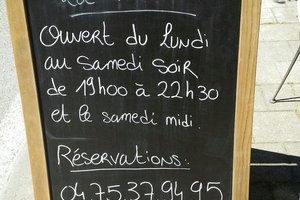 Ouvert du Lundi
au Samedi Soir
de 19h00 à 22h30
et le samedi midi.
Réservations:
04 75 37 94 95